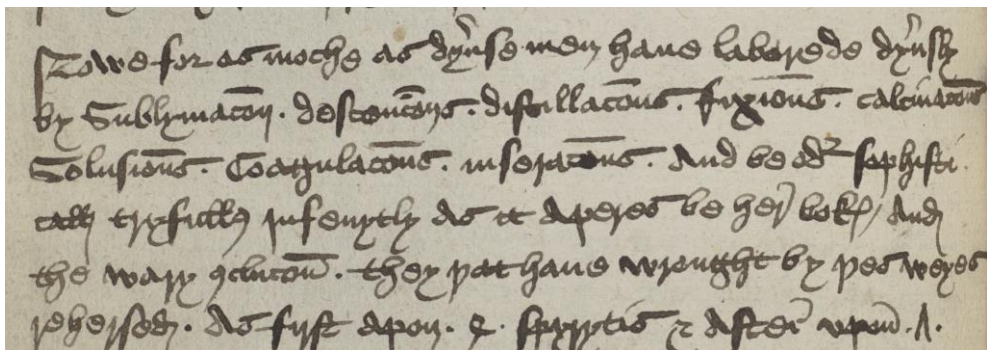 Nowe for as moche as dyuse men haue laborede dyusly
by Sublymacon. descencons. distillacons. fixions. calcinacons
Solusions. Coagulacons. inseracons. And be odr sophisti
call tryfulls infenytly as it aperes be her bokes / And
the wary conclucon. they þat haue wrought by þes weyes
rehersed. As fyrst apon. 2. spyrytis & after vpon. A.